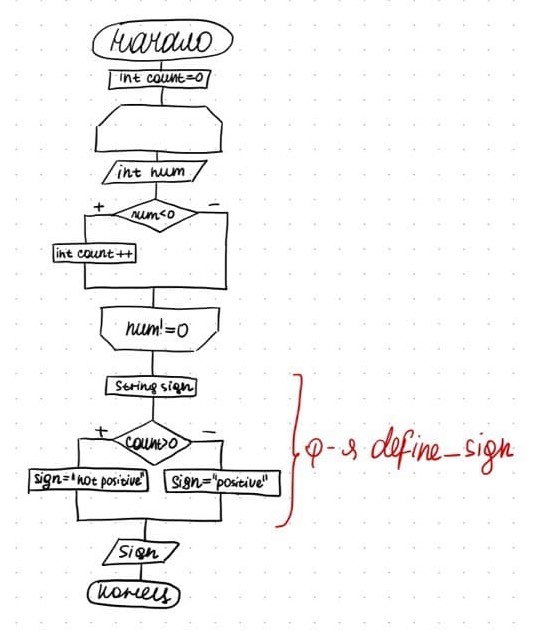 начало
int count=0
int num
+
num<0
-
int count++
num!=0
String sign
+
count>0
-
sign="not positive"
sign="positive"
ф-я define_sign
sign
конец